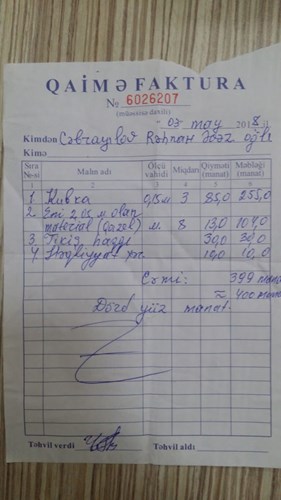 QAİMƏ FAKTURA
№ 6026207
(müəssisə daxili)
"03" may 2018 il
Kimdən Cəbrayılov Rəhman Əvəz oğlu
Kimə
Sıra №-si Malın adı Ölçü vahidi Miqdarı Qiyməti (manat) Məbləği (manat)
1 2 3 4 5 6
1 Kubka 3 85,0 255,0
2 Eni 2,05 m olan
material (Qazel) m. 8 13,0 104,0
3 Tikiş haqqı 30,0 30,0
4 Nəqliyyat 10,0 10,0
Cəmi: 399 manat
≈ 400 manat
Dörd yüz manat.
Təhvil verdi Təhvil aldı